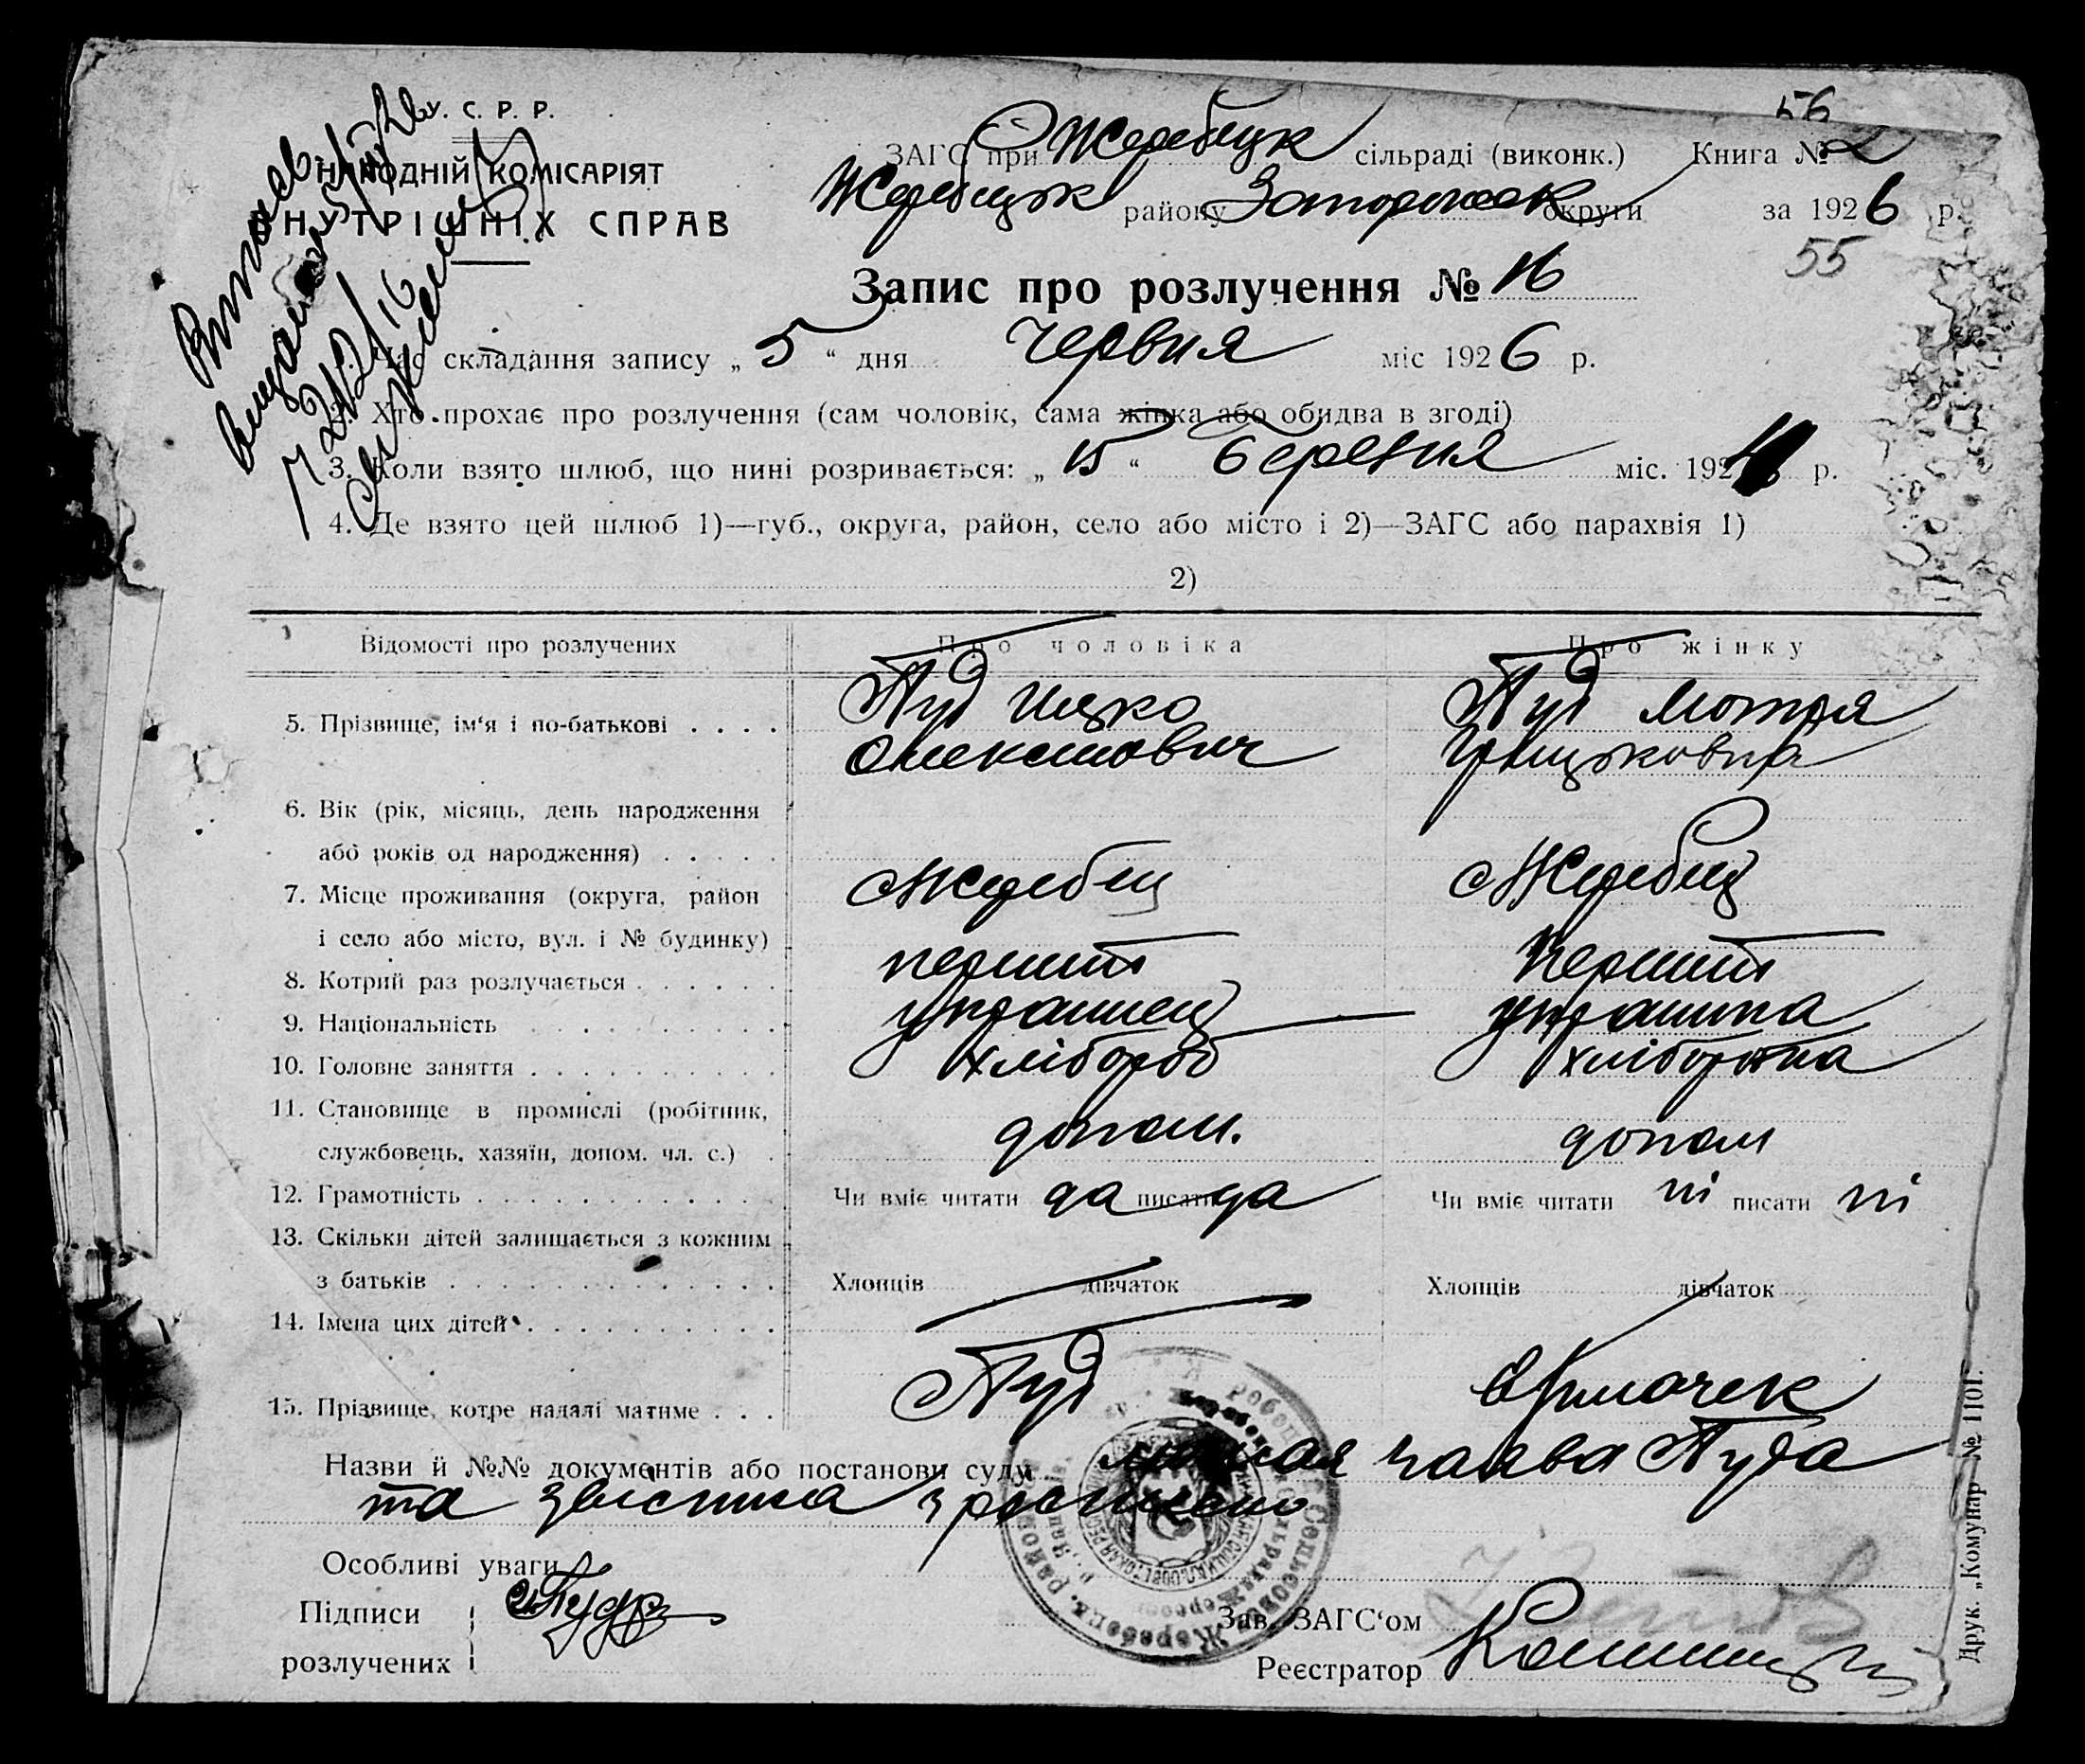 56
У. С. Р. Р.
НАРОДНІЙ КОМІСАРІЯТ
ВНУТРІШНІХ СПРАВ
ЗАГС при Жеребецк сільраді (виконк.) Книга № 2
Жеребецьк району Запорожск округи за 1926 р.
55
Запис про розлучення № 16
Час складання запису „ 5 “ дня Червня міс 1926 р.
2. Хто прохає про розлучення (сам чоловік, сама жінка або обидва в згоді)
3. Коли взято шлюб, що нині розривається: „ 15 “ Березня міс. 192 р.
4. Де взято цей шлюб 1)—губ., округа, район, село або місто і 2)—ЗАГС або парахвія 1)
2)
Відомості про розлучених Про чоловіка Про жінку
5. Прізвище, ім‘я і по-батькові . . . . Пуд Ицко Пуд Мотря
Олексійович Грицьковна
6. Вік (рік, місяць, день народження
або років од народження) . . . . .
7. Місце проживання (округа, район Жеребец Жеребец
і село або місто, вул. і № будинку)
8. Котрий раз розлучається . . . . . . перший перший
9. Національність . . . . . . . . . . украинец украинка
10. Головне заняття . . . . . . . . . . хлібороб хліборобка
11. Становище в промислі (робітник, допом. допом
службовець, хазяїн, допом. чл. с.)
12. Грамотність . . . . . . . . . . . . Чи вміє читати да писати да Чи вміє читати ні писати ні
13. Скільки дітей залишається з кожним
з батьків . . . . . . . . . . . . . Хлопців дівчаток Хлопців дівчаток
14. Імена цих дітей . . . . . . . . . .
15. Прізвище, котре надалі матиме . . . Пуд Ярмочек
Назви й №№ документів або постанови суду заява Пуда
та звістка з
Особливі уваги
Підписи Пуд
розлучених
Зав. ЗАГС‘ом
Реєстратор
Друк. „Комунар“ № 1101.